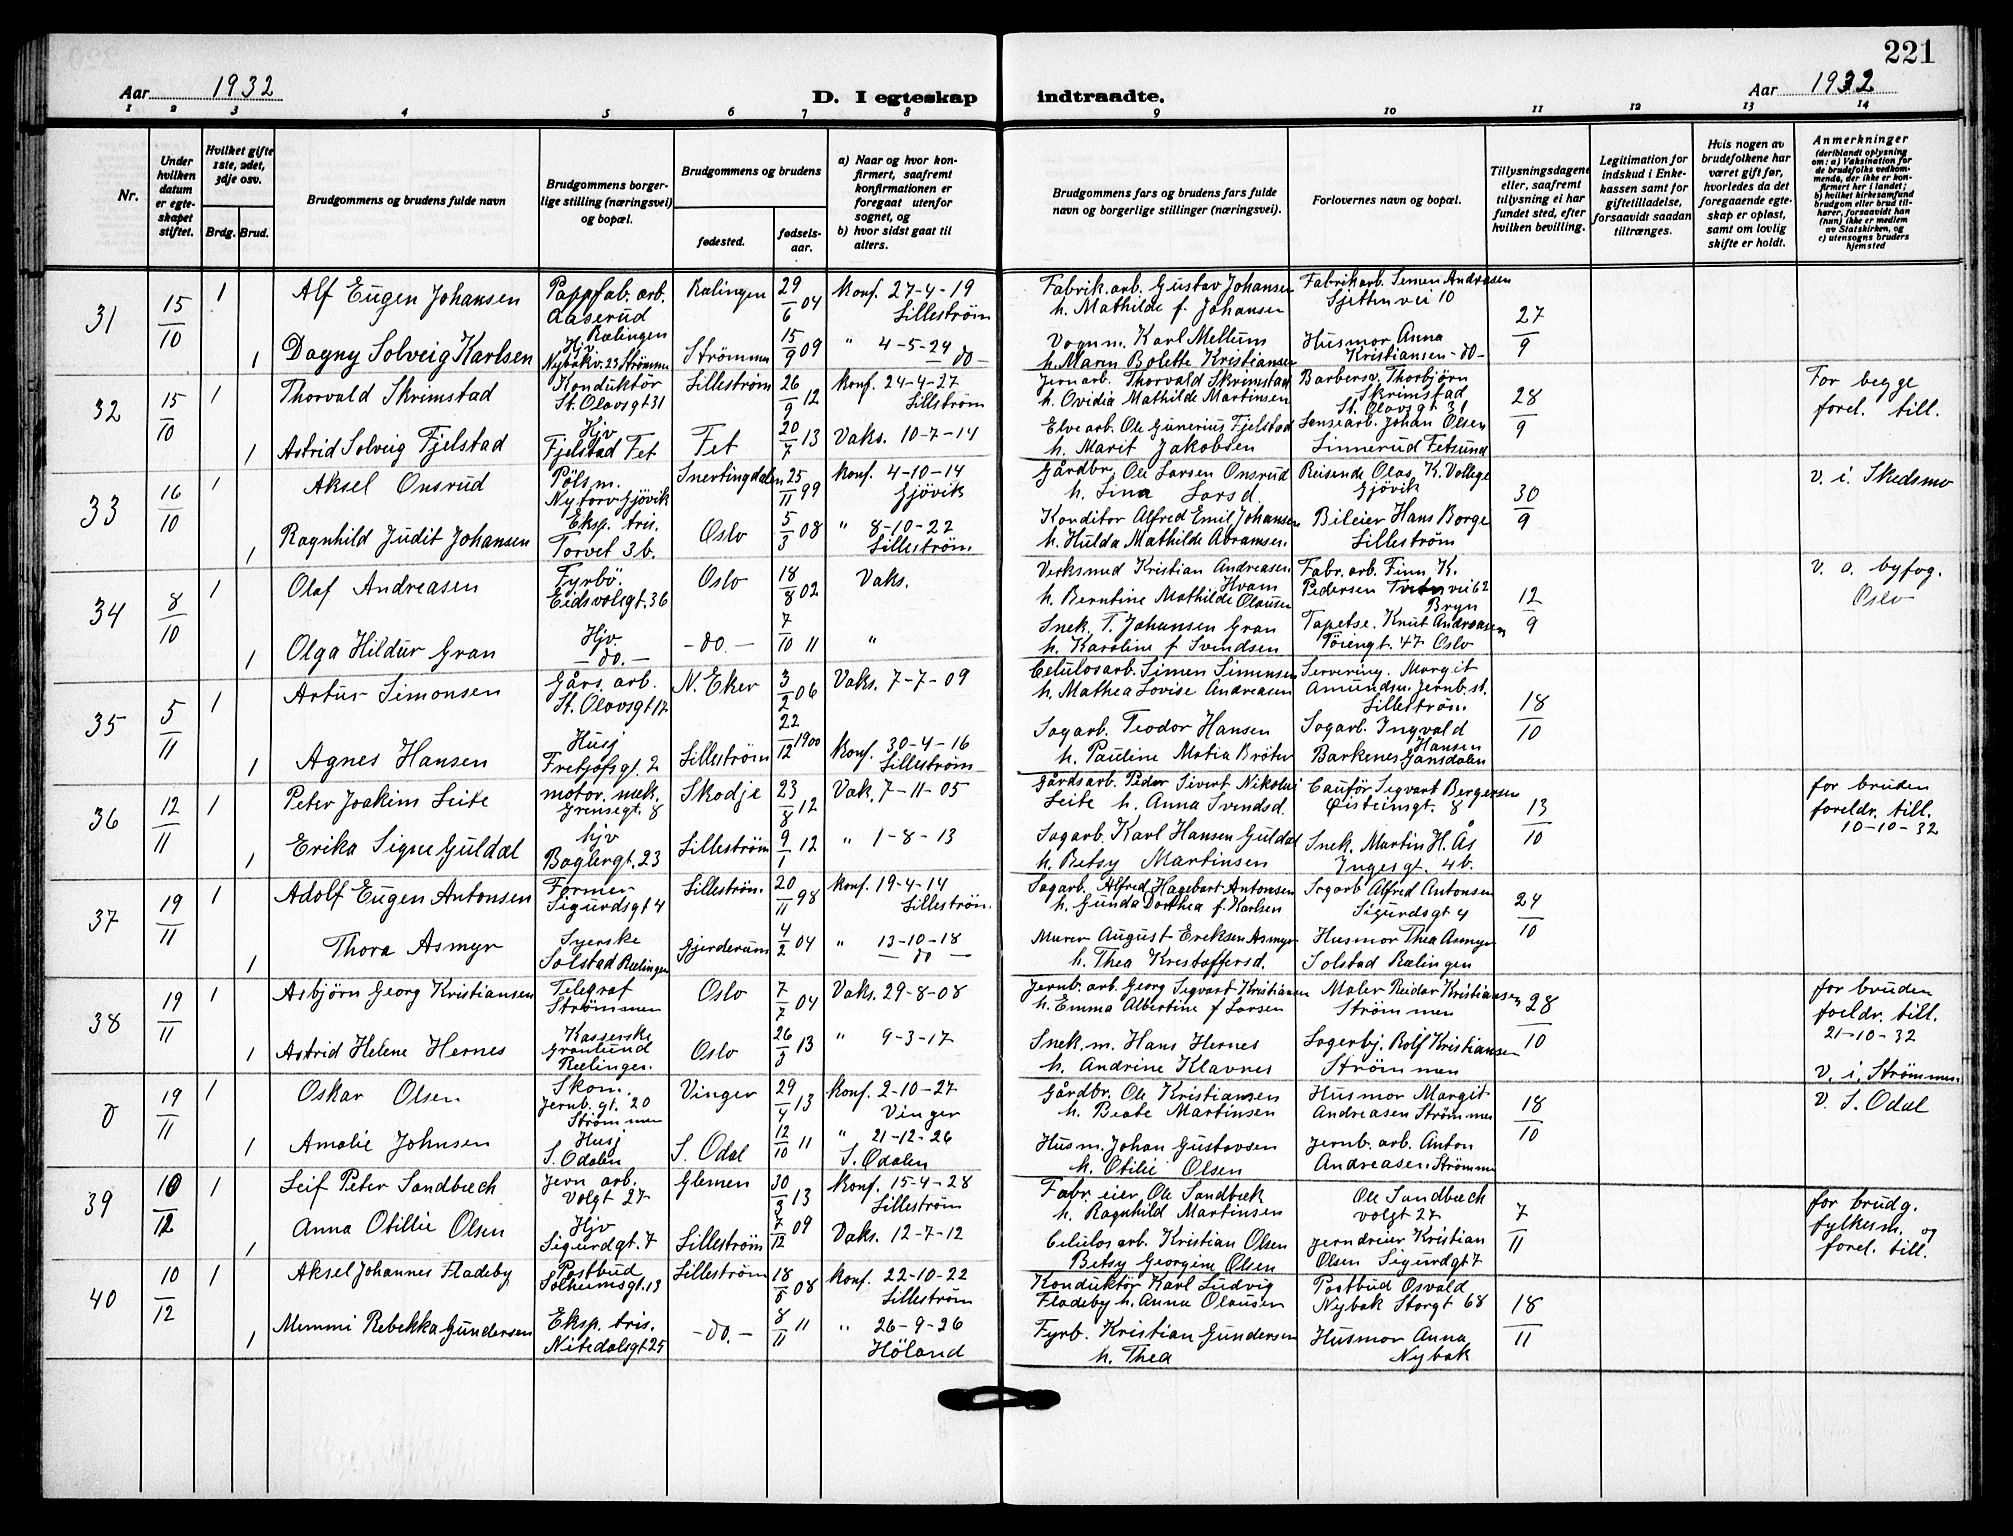 221
Aar 1932
D. I egteskap indtraadte.
Aar 1932
1 2 3 4 5 6 7 8 9 10 11 12 13 14
Nr.
Under hvilken datum er egteskapet stiftet.
Hvilket gifte 1ste, 2det, 3dje osv.
Brdg. Brud.
Brudgommens og brudens fulde navn
Brudgommens borgerlige stilling (næringsvei) og bopæl.
Brudgommens og brudens
fødested.
fødselsaar.
a) Naar og hvor konfirmert, saafremt konfirmationen er foregaat utenfor sognet, og
b) hvor sidst gaat til alters.
Brudgommens fars og brudens fars fulde navn og borgerlige stillinger (næringsvei).
Forlovernes navn og bopæl.
Tillysningsdagene eller, saafremt tillysning ei har fundet sted, efter hvilken bevilling.
Legitimation for indskud i Enkekassen samt for giftetilladelse, forsaavidt saadan tiltrænges.
Hvis nogen av brudefolkene har været gift før, hvorledes da det foregaaende egteskap er opløst, samt om lovlig skifte er holdt.
Anmerkninger (deriblandt oplysning om: a) Vaksination for de brudefolks vedkommende, der ikke er konfirmert her i landet; b) hvilket kirkesamfund brudgom eller brud tilhører, forsaavidt han (hun) ikke er medlem av Statskirken, og c) utensogns bruders hjemsted
31 15/10 1 Alf Eugen Johansen Pappfab. arb. Aaserud Rælingen Rælingen 29/6 04 Konf. 27-4-19 Lilleström Fabrik. arb. Gustav Johansen h. Mathilde f. Johansen Fabrikarb. Simen Andreasen vei 10 27/9
1 Dagny Solveig Karlsen Hjv. Nybakv. 23 Strømmen Strömmen 15/9 09 " 4-5-24 -do- Vognm. Karl Mellum h. Maren Bolette Kristiansen Husmor Anna Kristiansen -do-
32 15/10 1 Thorvald Skrimstad Konduktör St. Olavsgt 31 Lilleström 26/9 12 Konf. 24-4-27 Lillström Jernarb. Thorvald Skrimstad h. Ovidia Mathilde Martinsen Barbersv. Thorbjörn Skrimstad St. Olavsgt 31 28/9 For begge forel. till.
1 Astrid Solveig Fjelstad Hjv Fjelstad Fet Fet 20/7 13 Vaks. 10-7-14 Elvearb. Ole Gunerius Fjelstad h. Marit Jakobsen Lensearb. Johan Olsen Linnerud Fetsund
33 16/10 1 Aksel Onsrud Pölsm. Nytorv Gjövik Snertingdalen 25/11 99 Konf. 4-10-14 Gjövik Gårdbr. Ole Larsen Onsrud h. Lina Larsd. Reisende Olas K. Vollege Gjövik 30/9 v. i Skedsmo
1 Ragnhild Judit Johansen Eksp. tris. Torvet 3 b. Oslo 5/3 08 " 8-10-22 Lilleström Konditor Alfred Emil Johansen h. Hulda Mathilde Abramsen. Bileier Hans Borge Lilleström
34 8/10 1 Olaf Andreasen Fyrbö. Eidsvolsgt. 36 Oslo 18/8 02 Vaks. Verksmed Kristian Andreasen Hvam h. Berntine Mathilde Olausen Fabr. arb. Finn K. Pedersen Tvetnvei 62 Bryn 12/9 v. o. byfog. Oslo
1 Olga Hildur Gran Hjv -do.- -do.- 7/10 11 " Snek. T. Johansen Gran h. Karoline f Svendsen Tapetse. Knut Andreasen Töiengt. 47 Oslo
35 5/11 1 Artur Simonsen Gårs. arb. St. Olavsgt 17 N. Eker 3/2 06 Vaks. 7-7-09 Celulosarb. Simen Simensen h. Mathea Lovise Andreasen Servering. Margit Amundsen Jernb. st. Lilleström. 18/10
1 Agnes Hansen Husj Fretjofsgt. 2 Lilleström 22/12 1900 Konf. 30-4-16 Lilleström Sagarb. Teodor Hansen h. Pauline Matia Bröter Sagarb. Ingvald Hansen Barkenes Gansdalen
36 12/11 1 Peter Joakim Leite motor. mek. Grensegt. 8 Skodje 23/8 12 Vak. 7-11-05 Gårdsarb. Peder Sivert Nikolai Leite h. Anna Svendsd. Cauför Sigvart Bergersen Øisteinsgt. 8 13/10 for bruden foreldr. till. 10-10-32
1 Erika Signe Guldal hjv Baglergt. 23 Lilleström 9/1 12 " 1-8-13 Sagarb. Karl Hansen Guldal h. Betsy Martinsen Snek. Martin H. Ås Ingesgt. 4b.
37 19/11 1 Adolf Eugen Antonsen Former Sigurdsgt 4 Lilleström. 20/11 98 Konf. 19-4-14 Lilleström. Sagarb. Alfred Hagebart Antonsen h. Gunda Dorthea f. Karlsen Sagarb Alfred Antonsen Sigurdsgt 4 24/10
1 Thora Asmyr Syerske Solstad Rælingen Gjerderum 4/2 04 " 13-10-18 -do- Murer August Eriksen Asmyr h. Thea Kristoffersd. Husmor Thea Asmyr Solstad Rælingen
38 19/11 1 Asbjörn Georg Kristiansen Telegraf Strömmen Oslo 7/7 04 Vaks. 29-8-08 Jernb. arb. Georg Sigvart Kristiansen h. Emma Albertine f Larsen Maler Reidar Kristiansen Strömmen 28/10 for bruden foreldr. till. 21-10-32
1 Astrid Helene Hernes Kasserske Grönlund Rælingen. Oslo 26/3 13 " 9-3-17 Snek. m. Hans Hernes h. Andrine Klavnes Lagerbj. Rolf Kristiansen Strömmen v. i. Strømmen
0 19/11 1 Oskar Olsen Skom. Jernb. gt. 20 Strömmen Vinger 29/4 13 Konf. 2-10-27 Vinger Gårdbr. Ole Kristiansen h. Beate Martinsen Husmor Margit Andreasen Strömmen 18/10 v. S. Odal
1 Amalie Johnsen Husj S. Odalen S. Odal 12/10 11 " 21-12-26 S. Odalen Husm. Johan Gustavsen h. Otilie Olsen Jernb. arb. Anton Andreasen Strömme
39 10/12 1 Leif Peter Sandbæch Jern arb. Volgt 27 Glemen 30/3 13 Konf. 15-4-28 Lilleström Fabr. eier Ole Sandbæk h. Ragnhild Martinsen Ole Sandbæch volgt 27 7/11 for brudg. fylkesm. og forel. till.
1 Anna Otillie Olsen Hjv Sigurdgt. 7 Lilleström 7/12 09 Vaks. 12-7-12 Celulos arb. Kristian Olsen Betsy Georgine Olsen Jerndreier Kristian Olsen Sigurdgt 7
40 10/12 1 Aksel Johannes Fladeby Postbud Solheimsgt. 13 Lilleström 18/5 08 Konf. 22-10-22 Lilleström Konduktør Karl Ludvig Fladeby h. Anna Olausen Postbud Osvald Nybak Storgt 68 18/11
1 Memmi Rebekka Gundersen Eksp. tris. Nitedalsgt 25 -do.- 8/11 11 " 26-9-26 Höland Fyrb. Kristian Gundersen h. Thea Husmor Anna Nybak